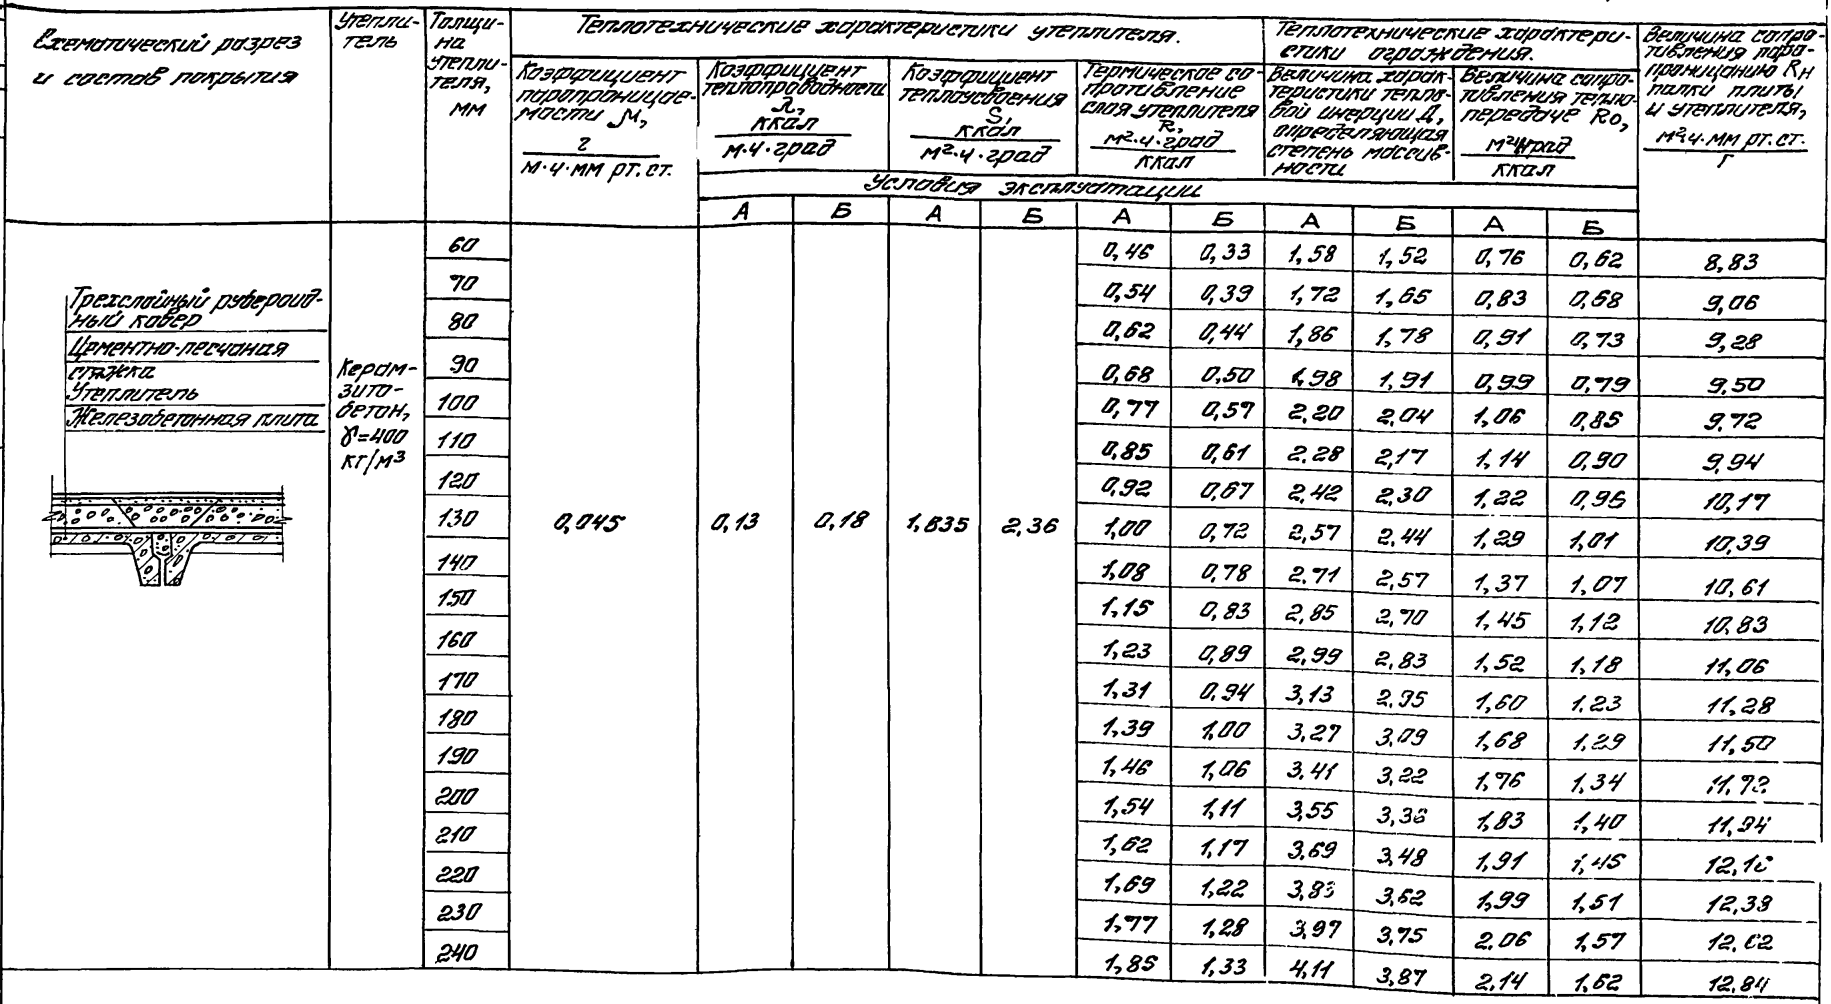 Схематический разрез
и состав покрытия
Утепли-
тель
Толщи-
на
утепли-
теля,
мм
Теплотехнические характеристики утеплителя.
Коэффициент
паропроницае-
мости μ,
г
м·ч·мм рт. ст.
Коэффициент
теплопроводности
λ,
ккал
м·ч·град
Коэффициент
теплоусвоения
S,
ккал
м²·ч·град
Термическое со-
противление
слоя утеплителя
R,
м²·ч·град
ккал
Теплотехнические характери-
стики ограждения.
Величина харак-
теристики тепло-
вой инерции Д,
определяющая
степень массив-
ности
Величина сопро-
тивления тепло-
передаче Rо,
м²чград
ккал
Величина сопро-
тивления паро-
проницанию Rн
плиты
и утеплителя,
м²ч·мм рт.ст.
г
Условия эксплуатации
А Б А Б А Б А Б А Б
Трехслойный рубероид-
ный ковер
Цементно-песчаная
стяжка
Утеплитель
Железобетонная плита
Керам-
зито-
бетон,
γ=400
кг/м3
0,045 0,13 0,18 1,835 2,36
60 0,46 0,33 1,58 1,52 0,76 0,62 8,83
70 0,54 0,39 1,72 1,65 0,83 0,68 9,06
80 0,62 0,44 1,86 1,78 0,91 0,73 9,28
90 0,68 0,50 1,98 1,91 0,99 0,79 9,50
100 0,77 0,57 2,20 2,04 1,06 0,85 9,72
110 0,85 0,61 2,28 2,17 1,14 0,90 9,94
120 0,92 0,67 2,42 2,30 1,22 0,96 10,17
130 1,00 0,72 2,57 2,44 1,29 1,01 10,39
140 1,08 0,78 2,71 2,57 1,37 1,07 10,61
150 1,15 0,83 2,85 2,70 1,45 1,12 10,83
160 1,23 0,89 2,99 2,83 1,52 1,18 11,06
170 1,31 0,94 3,13 2,95 1,60 1,23 11,28
180 1,39 1,00 3,27 3,09 1,68 1,29 11,50
190 1,46 1,06 3,41 3,22 1,76 1,34 11,72
200 1,54 1,11 3,55 3,36 1,83 1,40 11,94
210 1,62 1,17 3,69 3,48 1,91 1,45
220 1,69 1,22 3,83 3,62 1,99 1,51 12,39
230 1,77 1,28 3,97 3,75 2,06 1,57 12,62
240 1,85 1,33 4,11 3,87 2,14 1,62 12,84